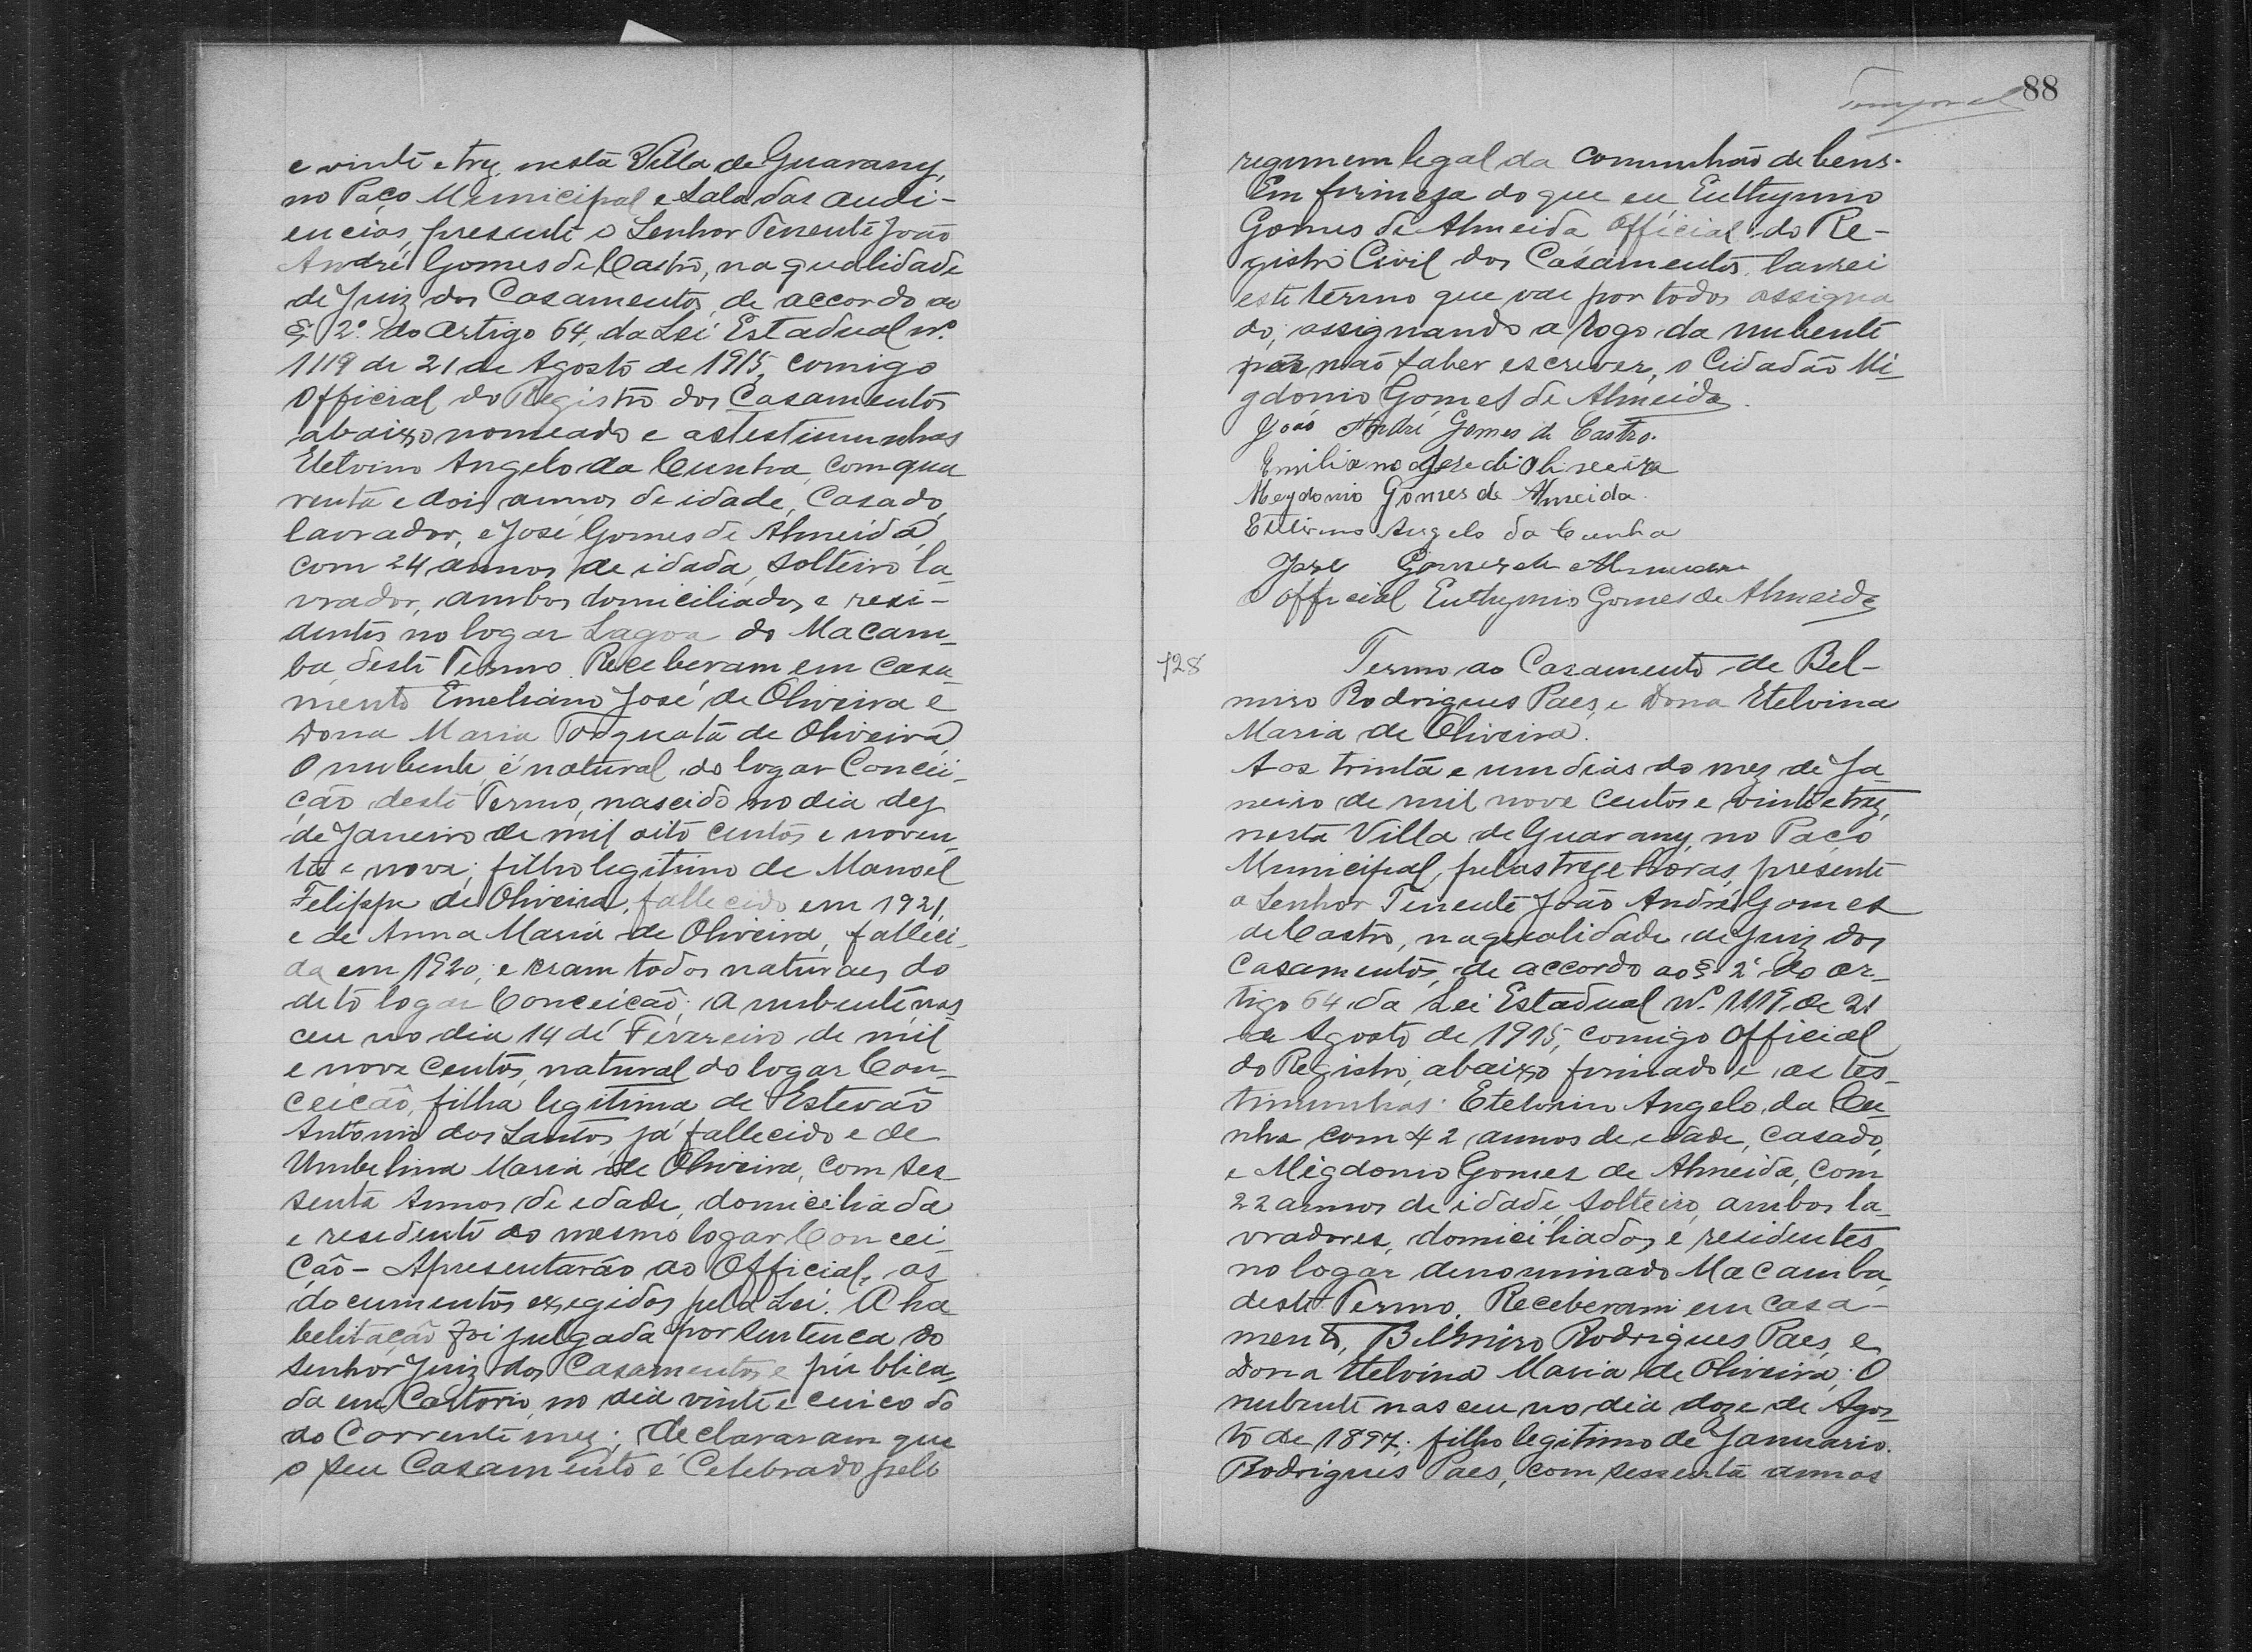 e vinte e trez, nesta Villa de Guarany,
no Paço Municipal e Sala das audi-
encias, presente o Senhor Tenente João
André Gomes de Castro, na qualidade
de Juiz dos Casamentos, de accordo ao
§ 2º do artigo 64, da Lei Estadual nº
1119 de 21 de Agosto de 1915, comigo
Official do Registro dos Casamentos
abaixo nomeado e as testimunhas
Etelvino Angelo da Cunha, com qua
renta e dois annos de idade, Casado,
lavrador, e José Gomes de Almeida,
com 24 annos de idade, solteiro la_
vrador, ambos domiciliados e resi-
dentes no logar Lagoa do Macam_
ba, deste Termo. Receberam em casa_
mento Emeliano José de Oliveira e
Dona Maria Torquata de Oliveira,
O nubente é natural do logar Concei_
ção deste Termo, nascido no dia dez
de Janeiro de mil oito centos e noven_
ta e nove; filho legitimo de Manoel
Felippe de Oliveira, fallecido em 1921,
e de Anna Maria de Oliveira, falleci_
da em 1920, e eram todos naturaes do
dito logar Conceição; a nubente, nas
ceu no dia 14 de Fevereiro de mil
e nove centos, natural do logar Con_
ceição, filha legitima de Estevão
Antonio dos Santos, já fallecido e de
Umbelina Maria de Oliveira, com ses_
senta annos de edade, domiciliada
e residente ao mesmo logar Concei_
ção - Apresentarão ao Official, os
documentos exegidos pela Lei. A ha
belitação foi julgada por sentença do
Senhor Juiz dos Casamentos e publica_
da em Cartorio, no dia vinte e cinco do
do Corrente mez; declararam que
o seu Casamento é Celebrado pelo
88
regimem legal da communhão de bens.
Em firmeza do que eu, Euthymio
Gomes de Almeida Official do Re-
gistro Civil dos Casamentos, lavrei
este termo que vae por todos assigna
do; assignando a rogo da nubente
por não saber escrever, o Cidadão Mi_
gdonio Gomes de Almeida.
João André Gomes de Castro.
Emiliano José de Oliveira
Meydonio Gomes de Almeida.
Etelvino Angelo da Cunha
José Gomes de Almeida
O official Euthymio Gomes de Almeida
128
Termo ao Casamento de Bel-
miro Rodrigues Paes, e Dona Etelvina
Maria de Oliveira.
Aos trinta e um dias do mez de Ja_
neiro de mil nove centos e vinte e trez,
nesta Villa de Guarany, no Paço
Municipal, pelas treze horas, presente
o Senhor Tenente João André Gomes
de Castro, na qualidade de Juiz dos
Casamentos, de accordo ao § 2º do ar_
tigo 64 da Lei Estadual Nº 1119 de 21
de Agosto de 1915, comigo Official
do Registro, abaixo firmado e as tes_
timunhas: Etelvino Angelo da Cu_
nha com 42 annos de edade, casado,
e Migdonio Gomes de Almeida, com
22 annos de idade, solteiro, ambos la_
vradores, domiciliados e residentes
no logar denominado Macamba,
deste Termo. Receberam em casa-
mento, Belmiro Rodrigues Paes, e
Dona Etelvina Maria de Oliveira; O
nubente nasceu no dia doze de Agos_
to de 1897; filho legitimo de Januario
Rodrigues Paes, com sessenta annos